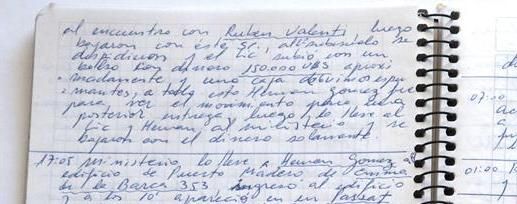 al encuentro con Ruben Valenti luego
bajaron con este Sr, al subirlo se
despidieron y el Lic subió con un
bolso con dinero 150.000 U$S aproxi
madamente y una caja de vinos espu
mantes, a todo esto Hernan Gomez fue
para ver el movimiento para una
posterior entrega, luego lo lleve al
Lic y Hernan al ministerio y se
bajaron con el dinero solamente.
17:05 ministerio lo lleve a Hernan Gomez al
edificio de Puerto Madero de Emma
de la Barca 353 ingreso al edificio
y a los 10' apareció en un Passat
07:
01:00